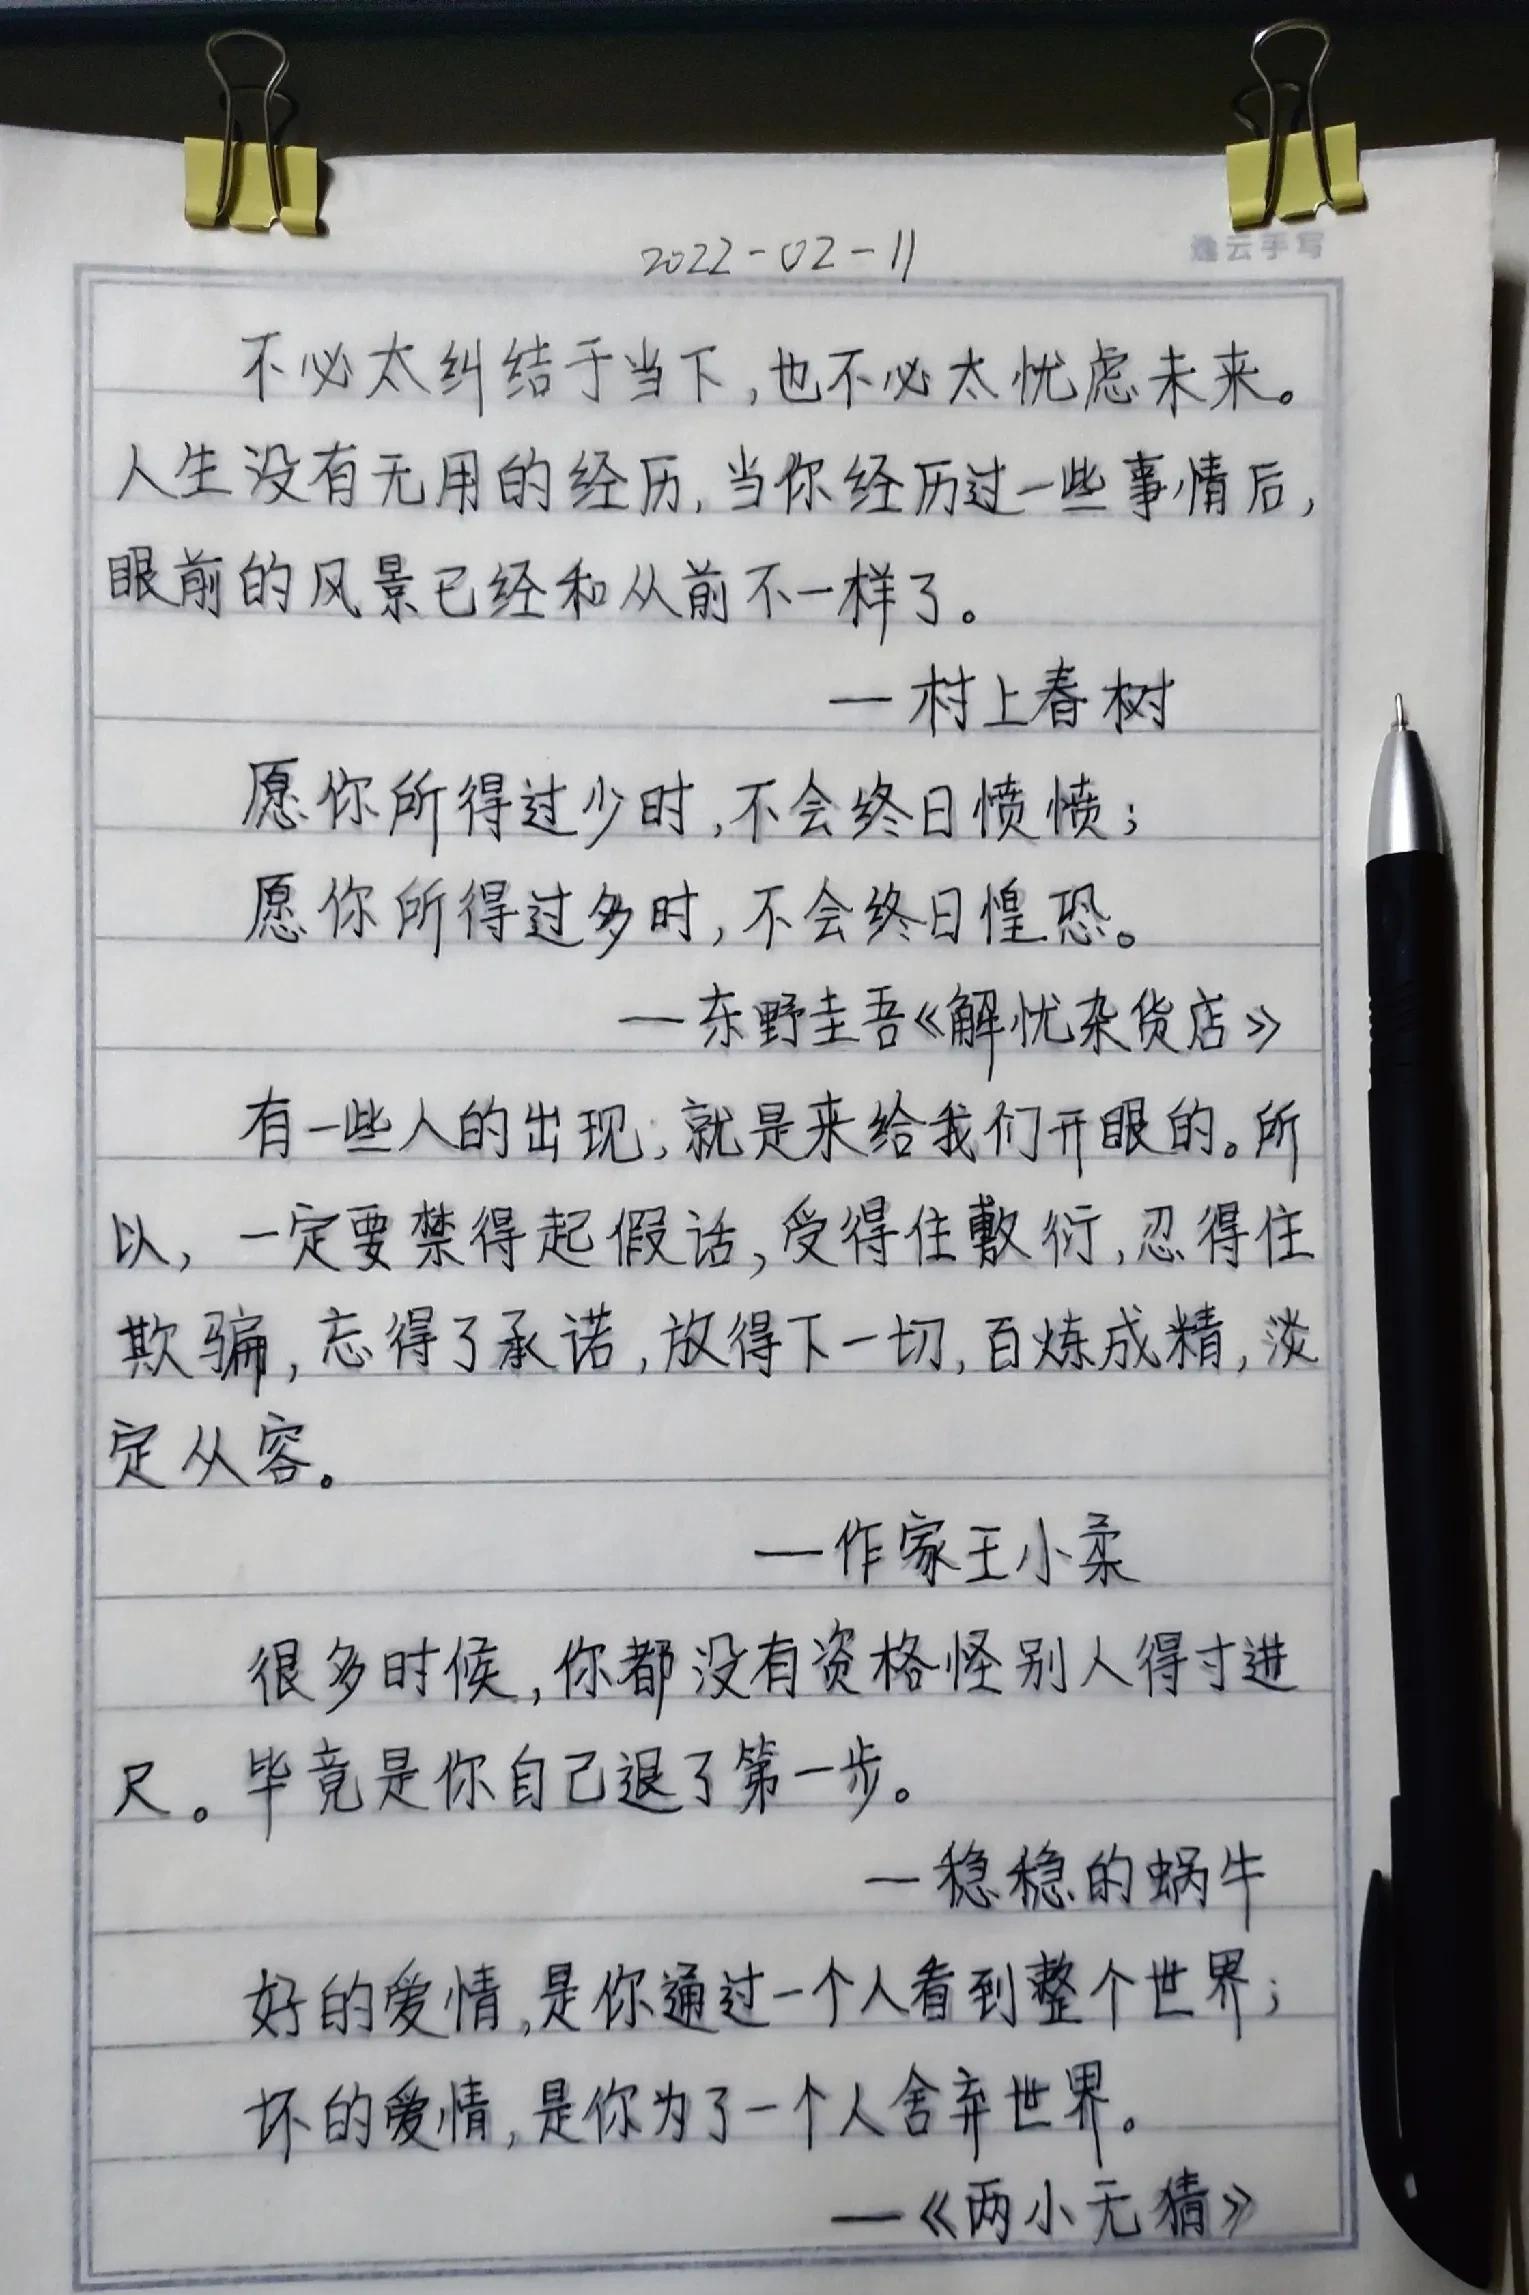 2022-02-11
逸云手写
不必太纠结于当下,也不必太忧虑未来。
人生没有无用的经历,当你经历过一些事情后,
眼前的风景已经和从前不一样了。
—村上春树
愿你所得过少时,不会终日愤愤;
愿你所得过多时,不会终日惶恐。
—东野圭吾《解忧杂货店》
有一些人的出现,就是来给我们开眼的。所
以,一定要禁得起假话,受得住敷衍,忍得住
欺骗,忘得了承诺,放得下一切,百炼成精,淡
定从容。
—作家王小柔
很多时候,你都没有资格怪别人得寸进
尺。毕竟是你自己退了第一步。
—稳稳的蜗牛
好的爱情,是你通过一个人看到整个世界;
坏的爱情,是你为了一个人舍弃世界。
—《两小无猜》